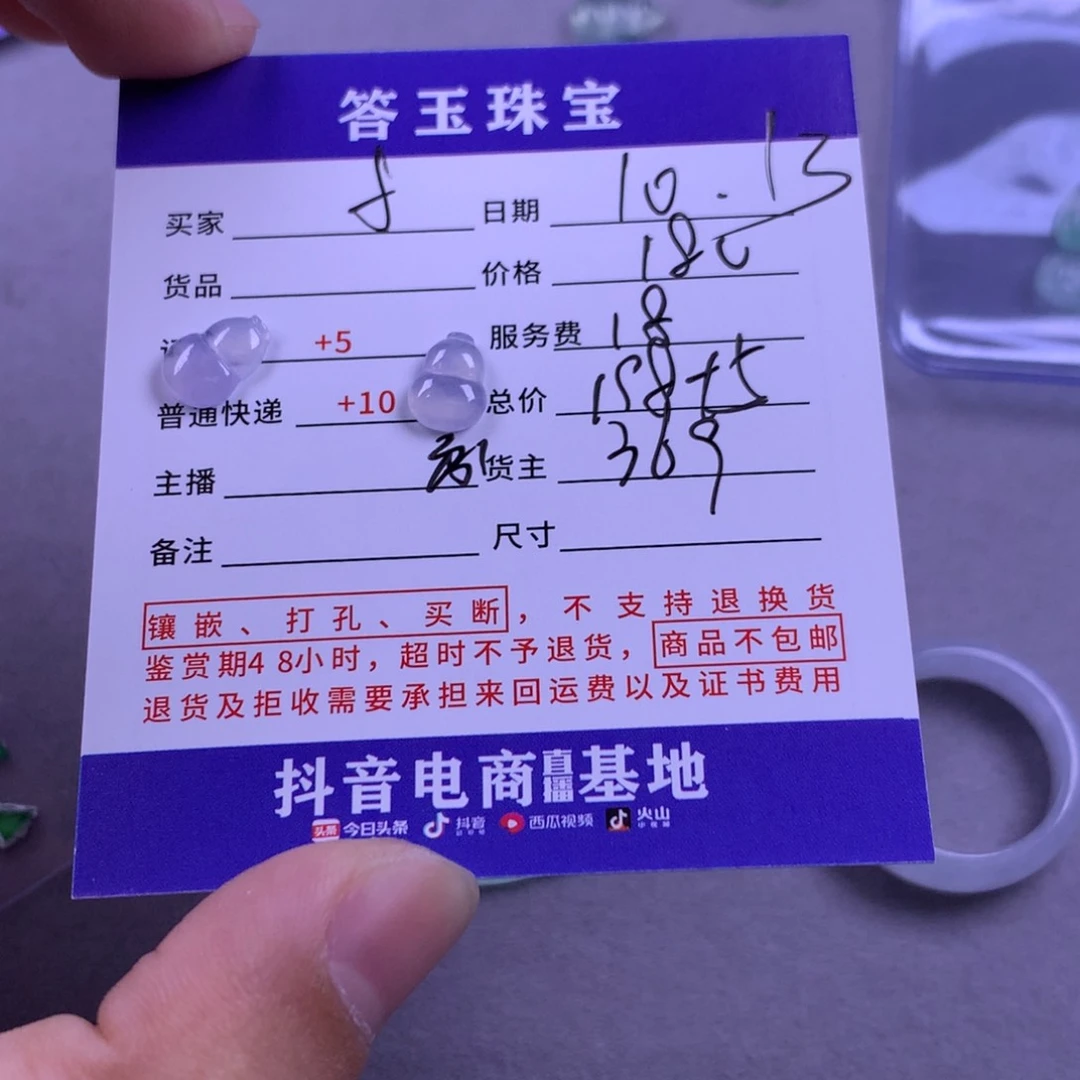 答玉珠宝
买家 8 日期 10.13
货品 价格 180
+5 服务费 18
普通快递 +10 总价 198+5
主播 货主 369
备注 尺寸
镶嵌、打孔、买断，不支持退换货
鉴赏期48小时，超时不予退货，商品不包邮
退货及拒收需要承担来回运费以及证书费用
抖音电商直播基地
头条 今日头条 抖音 西瓜视频 火山